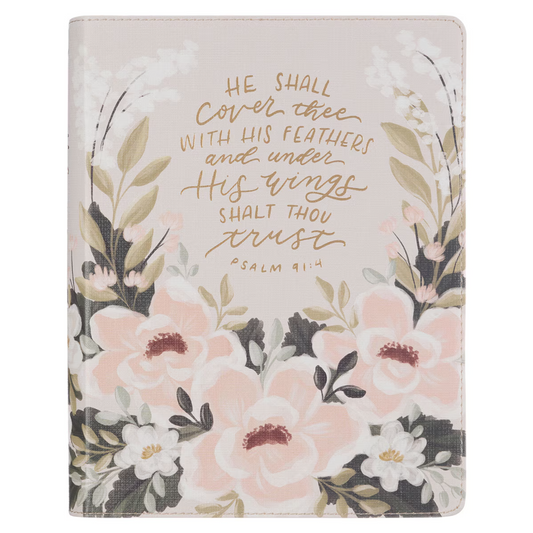 HE SHALL
Cover thee
WITH HIS FEATHERS
and under
His wings
SHALT THOU
trust
PSALM 91:4